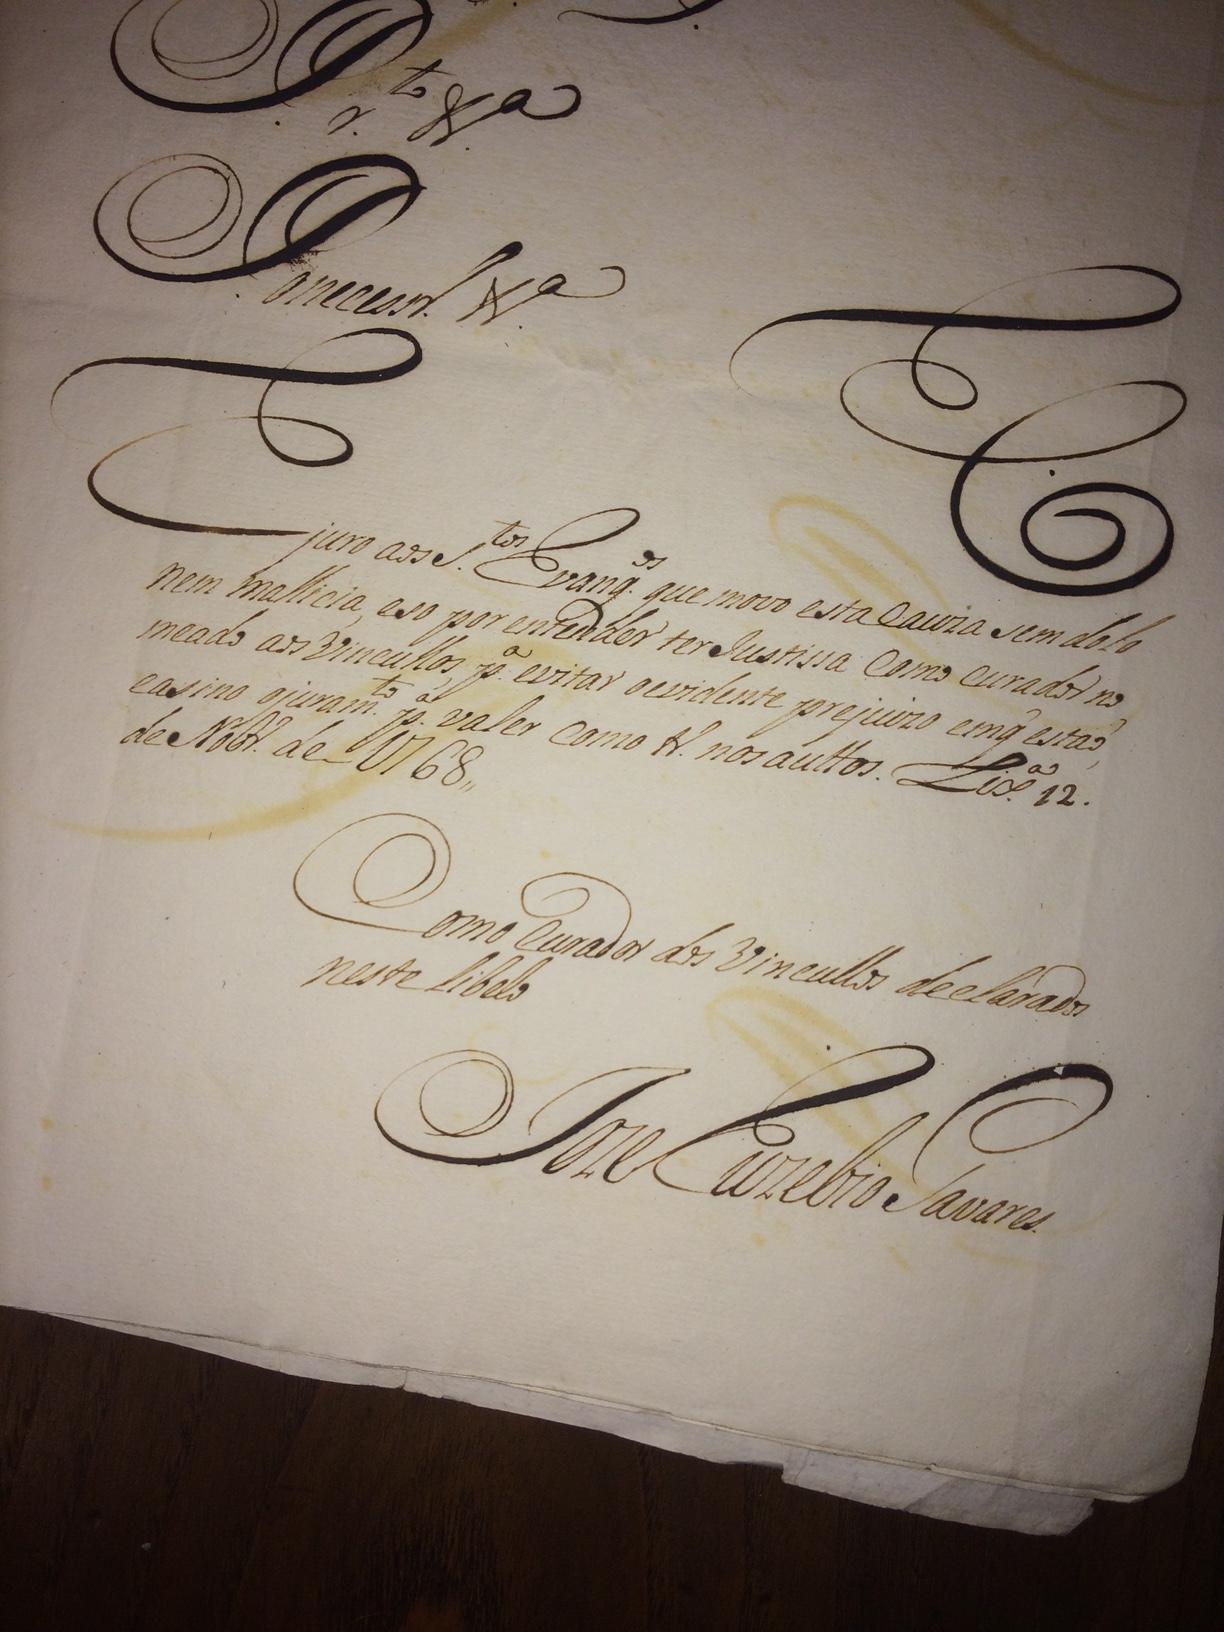 P. r.to &.a
P. o necessr.o &.a
E juro aos S.tos Evang.os que movo esta Cauza sem dolo
nem mallicia, e so por entender ter Justissa Como curador no
meado aos Vincullos, p.a evitar o evidente prejuizo em q estaõ,
e asino o juram.to p.a valer Como tl. nos auttos. Lix.a 12.
de Nobr.o de 1768,,
Como Curador dos Vincullos declarados
neste libelo
Joze Euzebio Tavares.